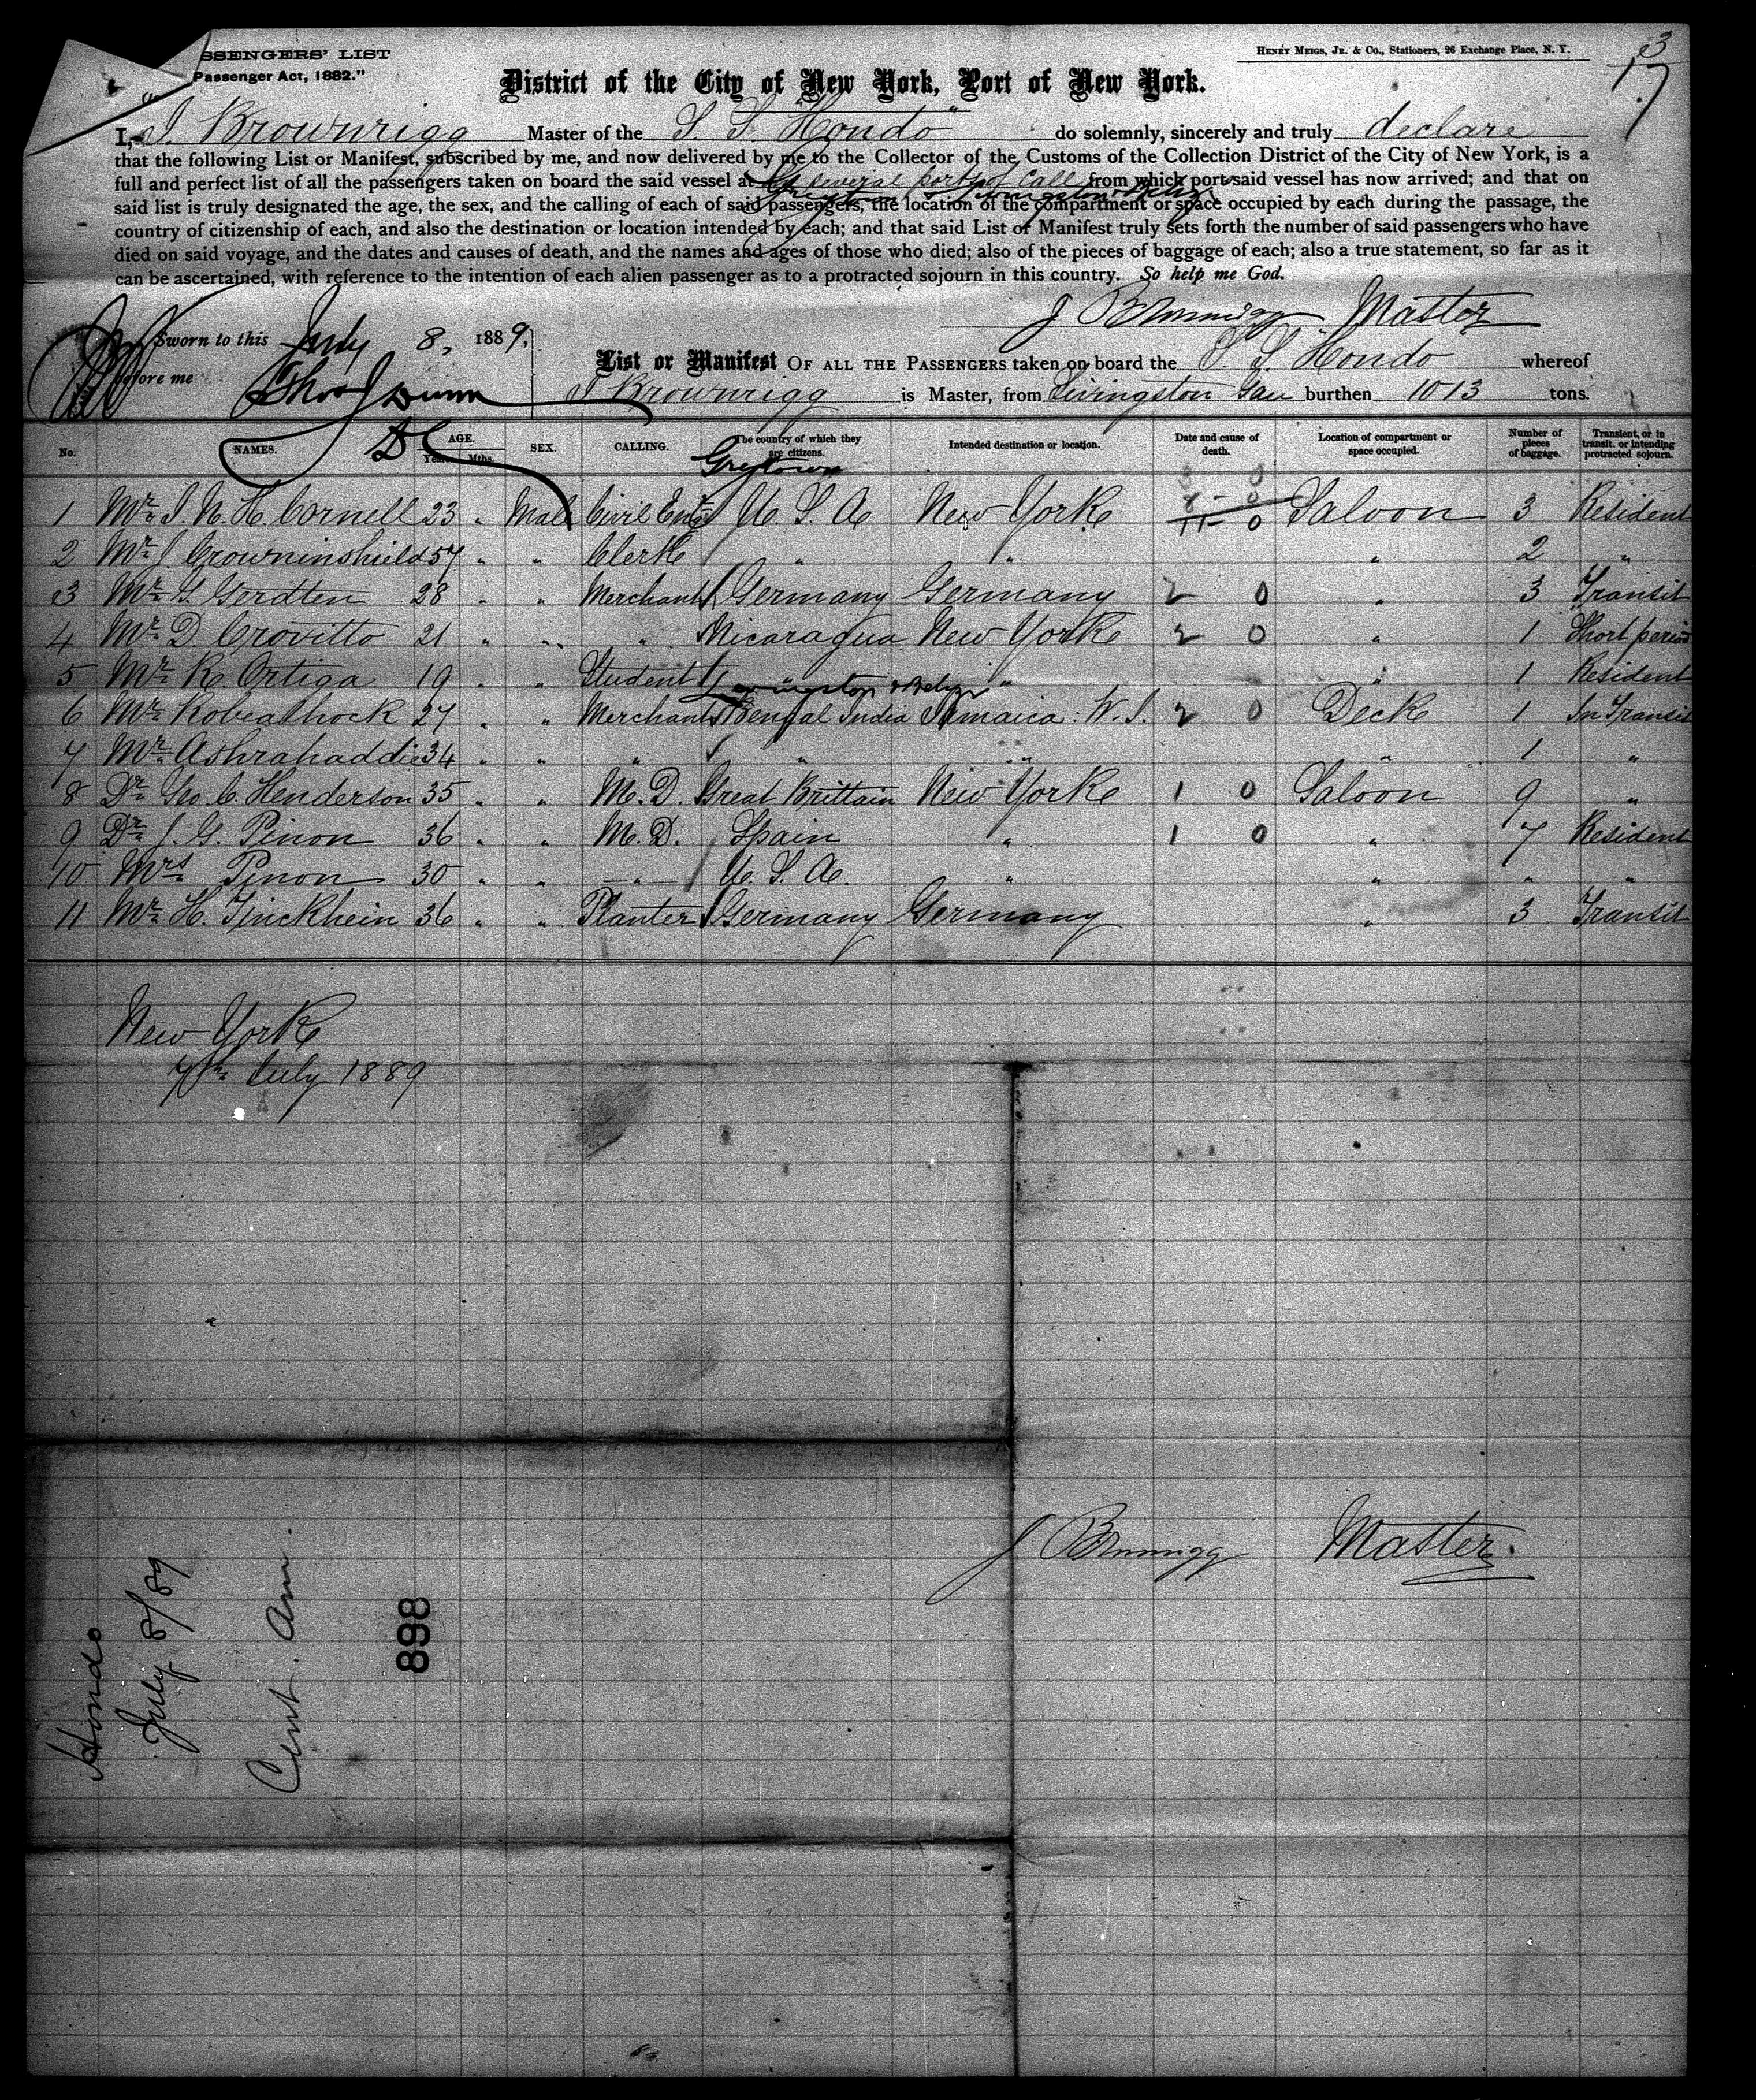 SSENGERS' LIST
Passenger Act, 1882."
HENRY MEIGS, JR. & CO., Stationers, 26 Exchange Place, N. Y.
District of the City of New York, Port of New York.
I, J. Brownrigg Master of the S. S. "Hondo" do solemnly, sincerely and truly declare
that the following List or Manifest, subscribed by me, and now delivered by me to the Collector of the Customs of the Collection District of the City of New York, is a
full and perfect list of all the passengers taken on board the said vessel at several ports of call from which port said vessel has now arrived; and that on
Livingston
said list is truly designated the age, the sex, and the calling of each of said passengers, the location of the compartment or space occupied by each during the passage, the
country of citizenship of each, and also the destination or location intended by each; and that said List or Manifest truly sets forth the number of said passengers who have
died on said voyage, and the dates and causes of death, and the names and ages of those who died; also of the pieces of baggage of each; also a true statement, so far as it
can be ascertained, with reference to the intention of each alien passenger as to a protracted sojourn in this country. So help me God.
J Brownrigg Master
Sworn to this July 8, 1889,
before me
List or Manifest OF ALL THE PASSENGERS taken on board the S. S. "Hondo whereof
J Brownrigg is Master, from Livingston Gau burthen 1013 tons.
No. NAMES. AGE. Years Mths. SEX. CALLING. The country of which they are citizens. Intended destination or location. Date and cause of death. Location of compartment or space occupied. Number of pieces of baggage. Transient, or in transit, or intending protracted sojourn.
Greytown
1 Mr J. N. H. Cornell 23 " Male Civil Engr U. S. A New York 11 - 0 Saloon 3 Resident
2 Mr J. Crowninshield 57 " " Clerk " " " 2 "
3 Mr G Gerdten 28 " " Merchant Germany Germany 2 0 " 3 Transit
4 Mr D. Crovitto 21 " " " Nicaragua New York 2 0 " 1 Short period
5 Mr R. Ortiga 19 " " Student " " 1 Resident
Livingston & Belize
6 Mr Robeathock 27 " " Merchant Bengal India Jamaica W. I. 2 0 Deck 1 In Transit
7 Mr Ashrahaddie 34 " " " " " " 1 "
8 Dr Geo. C. Henderson 35 " " M. D. Great Brittain New York 1 0 Saloon 9 "
9 Dr J. G. Pinon 36 " " M. D. Spain " 1 0 " 7 Resident
10 Mrs Pinon 30 " " — " — U. S. A. " " " "
11 Mr H. Finckhein 36 " " Planter Germany Germany " 3 Transit
New York
7th July 1889
J Brownrigg Master.
Hondo
July 8/89
Cent. Am.
898